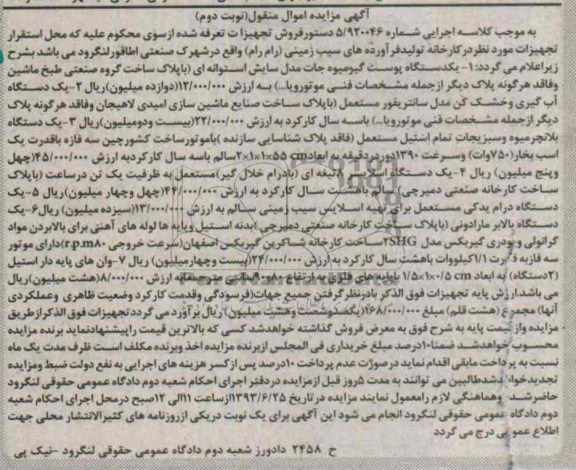 آگهی مزایده اموال منقول(نوبت دوم)
به موجب کلاسه اجرایی شماره ۵/۹۲۰۰۴۶ دستورفروش تجهیزات تعرفه شده ازسوی محکوم علیه که محل استقرار
تجهیزات مورد نظردرکارخانه تولیدفرآورده های سیب زمینی (رام رام) واقع درشهرک صنعتی اطاقورلنگرود می باشد بشرح
زیراعلام می گردد:۱- یکدستگاه پوست گیرمیوه جات مدل سایش استوانه ای (باپلاک ساخت گروه صنعتی طبخ ماشین
وفاقد هرگونه پلاک دیگر ازجمله مشخصات فنی موتورویا...) به ارزش ۱۲/۰۰۰/۰۰۰(دوازده میلیون)ریال ۲-یک دستگاه
آب گیری وخشک کن مدل سانتریفور مستعمل (باپلاک ساخت صنایع ماشین سازی امیدی لاهیجان وفاقد هرگونه پلاک
دیگر ازجمله مشخصات فنی موتورویا...) باسه سال کارکرد به ارزش ۲۲/۰۰۰/۰۰۰(بیست ودومیلیون)ریال ۳-یک دستگاه
بلانچرمیوه وسبزیجات تمام استیل مستعمل (فاقد پلاک شناسایی سازنده )باموتورساخت کشورچین سه فازه باقدرت یک
اسب بخار(۷۵۰وات) وسرعت ۱۳۹۰دوردردقیقه به ابعاد۵۵ cm×۱×۱×۲سالم باسه سال کارکردبه ارزش ۴۵/۰۰۰/۰۰۰(چهل
وپنج میلیون) ریال ۴-یک دستگاه اسلایسر ۸تیغه ای (بادرام خلال گیر)مستعمل به ظرفیت یک تن درساعت (باپلاک
ساخت کارخانه صنعتی دمیرچی) سالم سال کارکرد به ارزش ۴۴/۰۰۰/۰۰۰(چهل وچهار میلیون)ریال ۵-یک
دستگاه درام یدکی مستعمل برای تهیه اسلایس سیب زمینی سالم به ارزش ۱۳/۰۰۰/۰۰۰(سیزده میلیون)ریال۶-یک
دستگاه بالابر مارادونی (باپلاک ساخت کارخانه صنعتی دمیرچی )بدنه استیل وپایه ها لوله های آهنی برای بالابردن مواد
گرانولی وپودری گیربکس مدل SHG۲ساخت کارخانه شاکرین گیربکس اصفهان(سرعت خروجی r.p.m۸۰)دارای موتور
سه فازبه قدرت ۱/۱کیلووات باهشت سال کارکرد به ارزش ۲۴/۰۰۰/۰۰۰(بیست وچهارمیلیون) ریال ۷-وان های پایه دار استیل
(۲دستگاه) به ابعاد ۰/۵ cm×۱×۱/۵ باپایه های فلزی به ارتفاع ۸۰-۹۰سانتی مترجمعابه ارزش ۸/۰۰۰/۰۰۰(هشت میلیون)ریال
می باشد.ارزش پایه تجهیزات فوق الذکر بادرنظرگرفتن جمیع جهات(فرسودگی وقدمت کارکرد وضعیت ظاهری وعملکردی
آنها) مجموع (هشت قلم) مبلغ ۱۶۸/۰۰۰/۰۰۰(یکصدوشصت وهشت میلیون)ریال برآورد می گرددتجهیزات فوق الذکرازطریق
مزایده واز قیمت پایه به شرح فوق به معرض فروش گذاشته خواهدشد کسی که بالاترین قیمت راپیشنهادنماید برنده مزایده
محسوب خواهدشد ضمنا۱۰درصد مبلغ خریداری فی المجلس ازبرنده مزایده اخذ وبرنده مکلف است ظرف مدت یک ماه
نسبت به پرداخت مابقی اقدام نماید درصورت عدم پرداخت ۱۰درصد پس ازکسر هزینه های اجرایی به نفع دولت ضبط ومزایده
تجدیدخواهدشدطالبین می توانند به مدت ۵روز قبل ازمزایده دردفتر اجرای احکام شعبه دوم دادگاه عمومی حقوقی لنگرود
حاضرشده وهماهنگی لازم رامعمول نمایند مزایده در تاریخ ۱۳۹۳/۶/۲۵ازساعت ۱۱الی ۱۲صبح درمحل اجرای احکام شعبه
دوم دادگاه عمومی حقوقی لنگرود انجام می شود این آگهی برای یک نوبت دریکی ازروزنامه های کثیرالانتشار محلی جهت
اطلاع عموم درج می گردد
ح ۲۴۵۸ دادورز شعبه دوم دادگاه عمومی حقوقی لنگرود -نیک پی